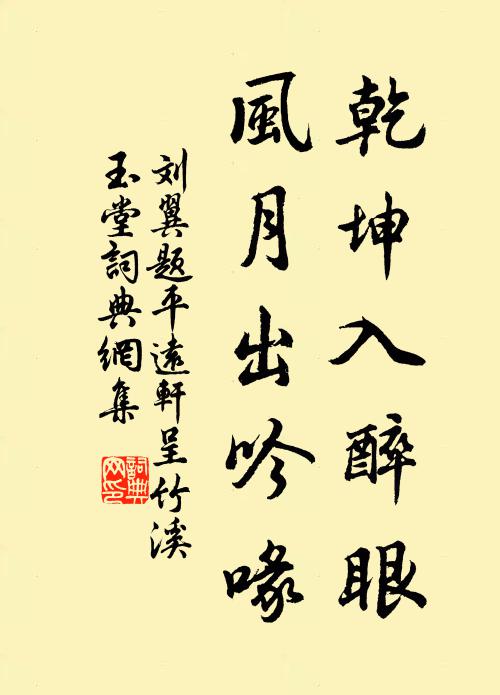 乾坤入醉眼
風月出吟喙
刘翼题平遠軒呈竹溪
玉堂詞典網集
詞典网印